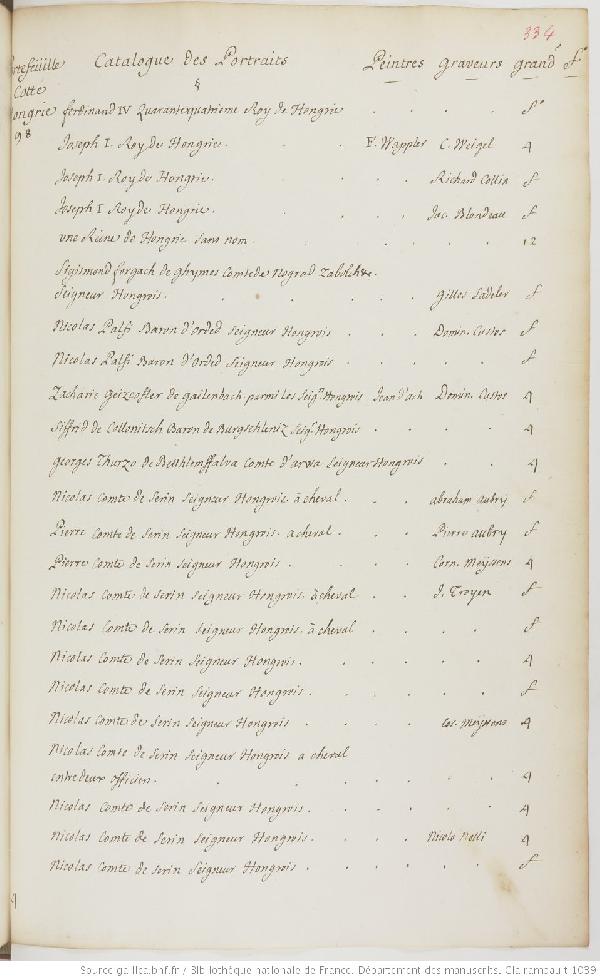 334
Catalogue des Portraits Peintres Graveurs grandr f°
Cotte
ferdinand IV Quarantequatrieme Roy de Hongrie f°
98
Joseph I. Roy de Hongrie. F. Wappler C. Weigel 4
Joseph I. Roy de Hongrie. Richard Collin f
Joseph I Roy de Hongrie. Jac. Blondeau f
une Reine de Hongrie sans nom. 12
Sigismond forgach de ghymes Comte de Nograd Zabolch &c.
Seigneur Hongrois. Gilles Sadeler f
Nicolas Palfi Baron d'Orded Seigneur Hongrois Domin. Custos f
Nicolas Palfi Baron d'Orded Seigneur Hongrois f
Zacharie Geizcofler de gailenbach parmi les Seigrs Hongrois Jean d'ach Domin. Custos 4
Siffrid de Collonitsch Baron de Burgschleniz Seigr Hongrois 4
Georges Thurzo de Bethlemffalva Comte d'arwa Seigneur Hongrois 4
Nicolas Comte de Serin Seigneur Hongrois. à cheval. abraham aubry f
Pierre Comte de Serin Seigneur Hongrois. a cheval. Pierre aubry f
Pierre Comte de Serin Seigneur Hongrois. Corn. Meyssens 4
Nicolas Comte de Serin Seigneur Hongrois. à cheval J. Troyen f
Nicolas Comte de Serin Seigneur Hongrois. à cheval f
Nicolas Comte de Serin Seigneur Hongrois. 4
Nicolas Comte de Serin Seigneur Hongrois. f
Nicolas Comte de Serin Seigneur Hongrois Cor. Meyssens 4
Nicolas Comte de Serin Seigneur Hongrois a cheval
entre deux officiers. 4
Nicolas Comte de Serin Seigneur Hongrois. 4
Nicolas Comte de Serin Seigneur Hongrois. Nicolo Nelli 4
Nicolas Comte de Serin Seigneur Hongrois f
Source gallica.bnf.fr / Bibliothèque nationale de France. Département des manuscrits. Clairambault 1039